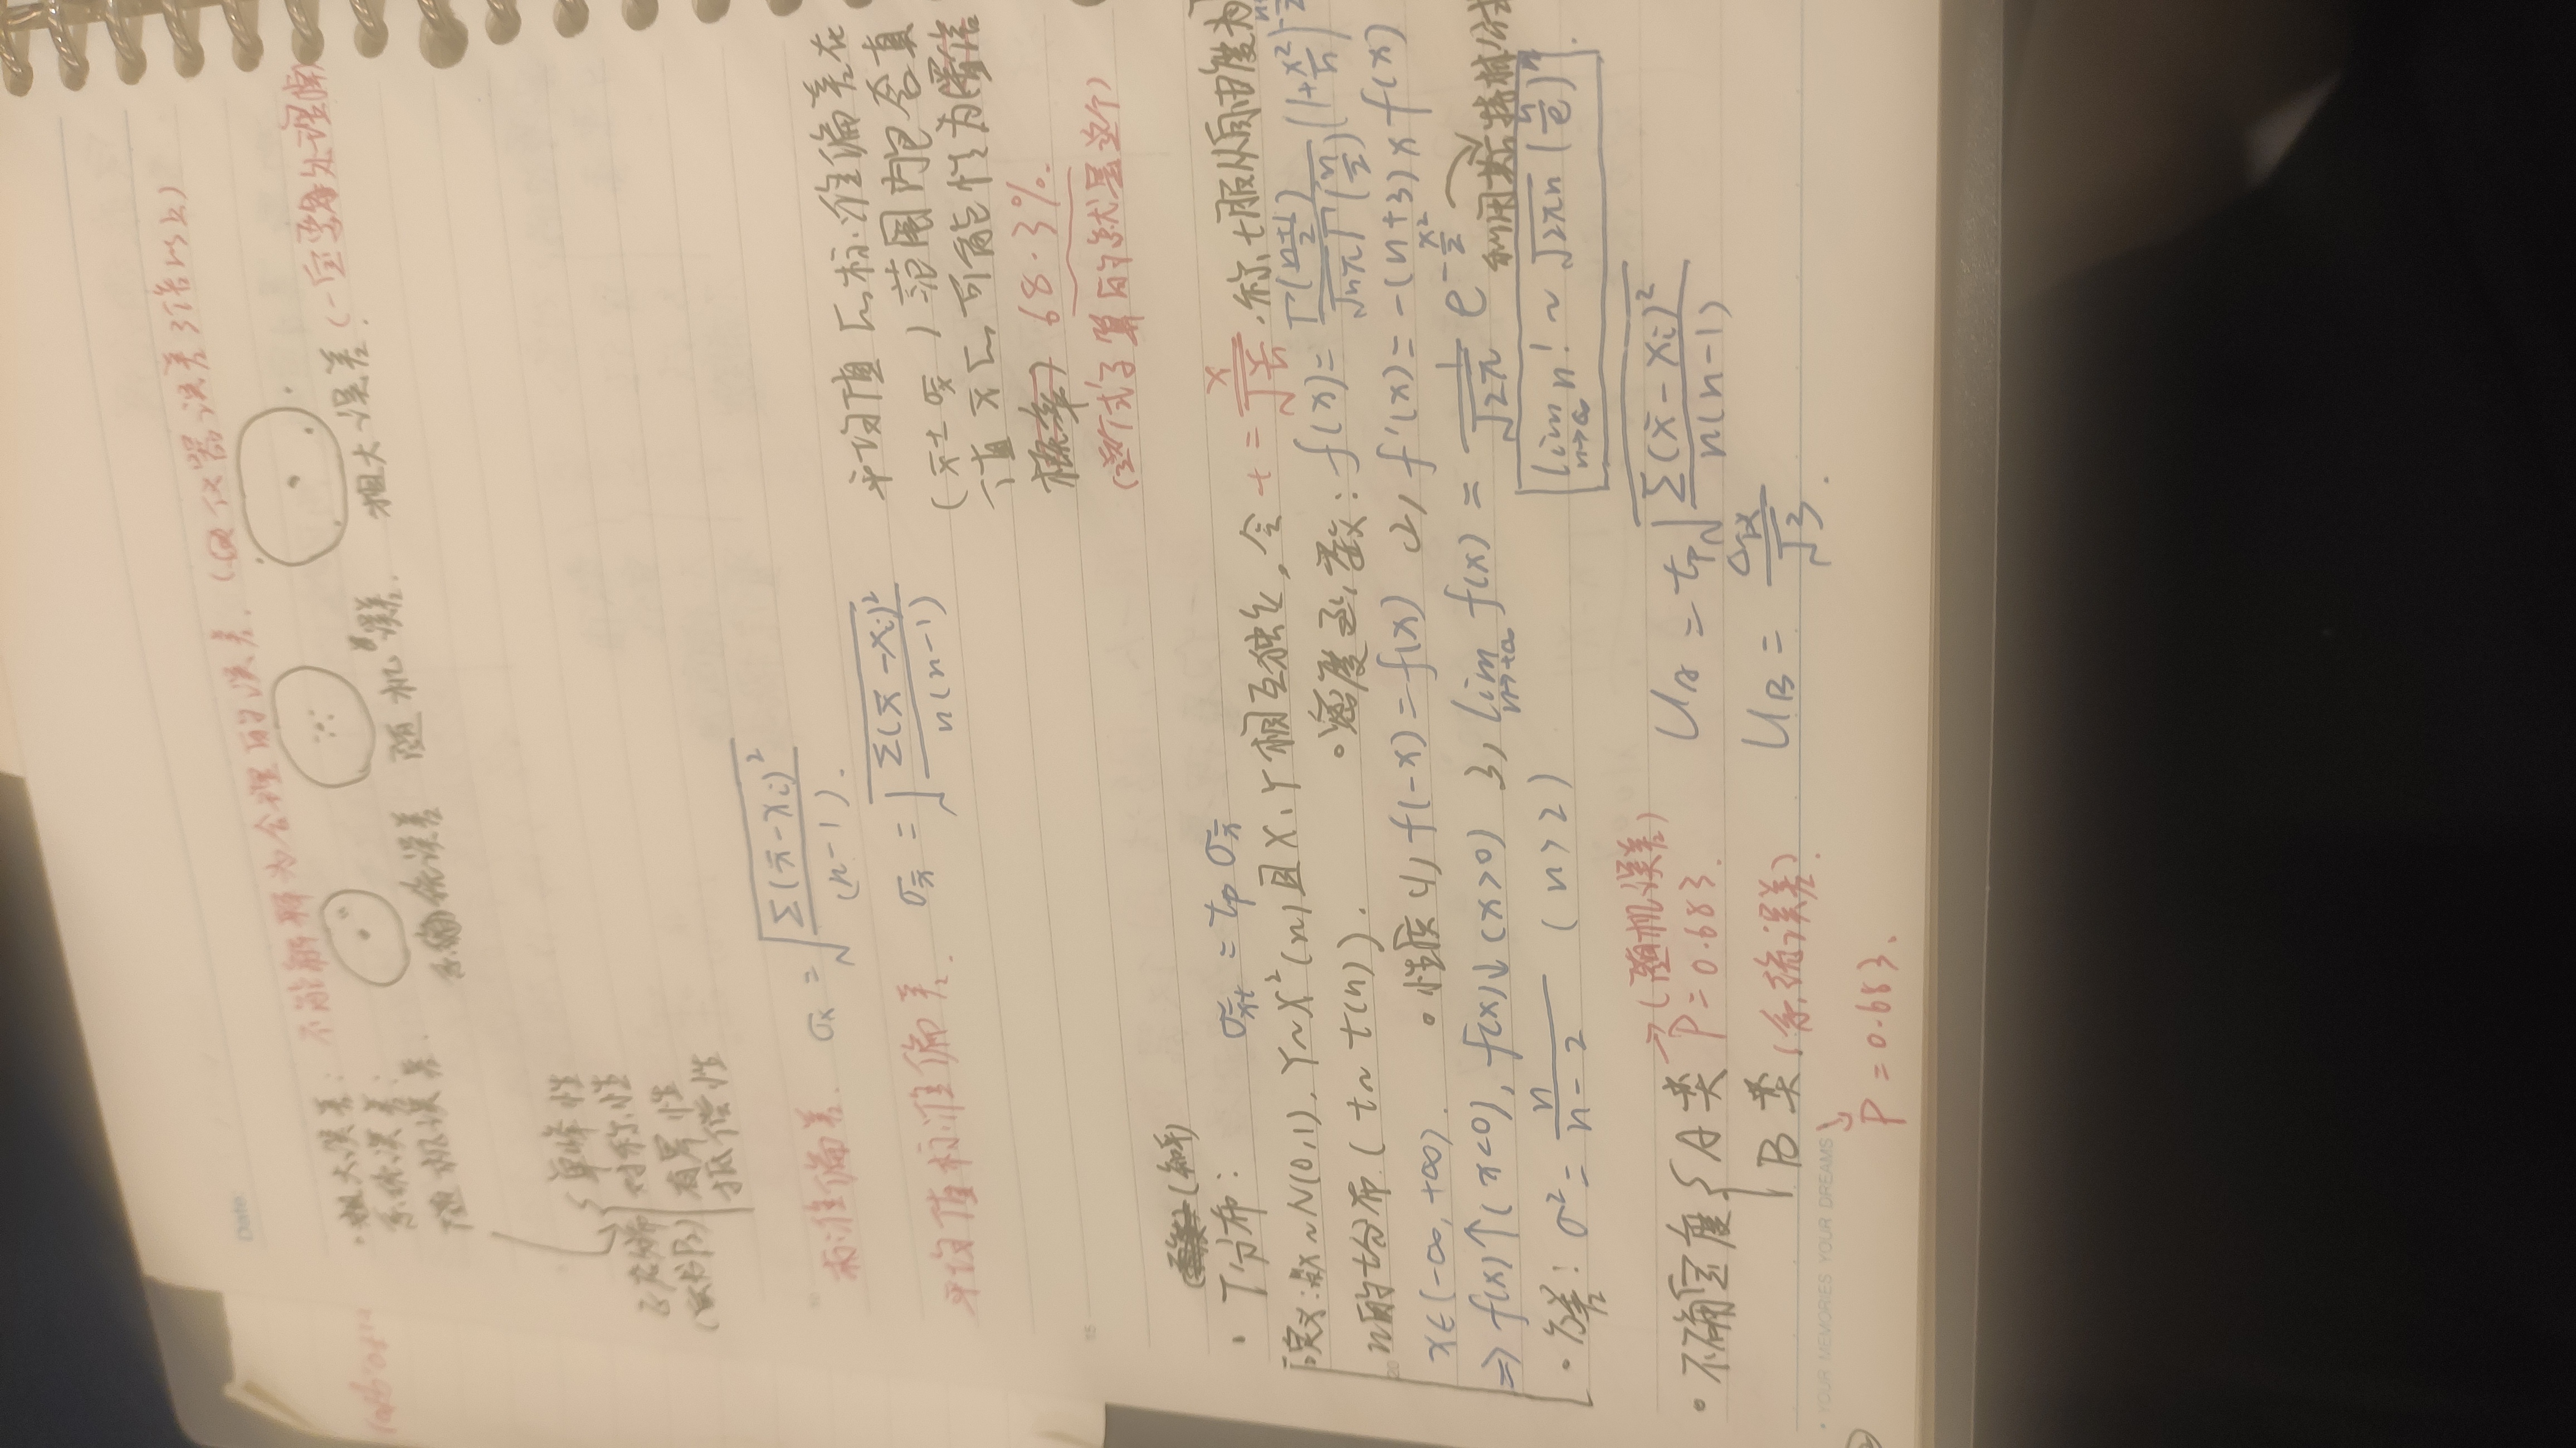 Date
·粗大误差: 不能解释为合理的误差.(仪器误差3倍以上)
系统误差:
随机误差.
系统误差 随机误差. 粗大误差.(一定要处理)
正态分布
单峰性
对称性
有界性
抵偿性
标准偏差. σx = √(Σ(x̄-xi)²/(n-1)).
平均值标准偏差. σx̄ = √(Σ(x̄-xi)²/n(n-1))
平均值[标准偏差在
(x̄±σx̄)范围内包含真
值x̄[可能性为
概率) 68.3%.
(整个式子算的就是这个)
·T分布: σx̄t = tp σx̄
定义:设x~N(0,1), Y~χ²(n)且X、Y相互独立, 令 t = x/√(Y/n), 称t服从自由度为
n的t分布(t~t(n)). ·密度函数: f(x) = Γ((n+1)/2)/(√(nπ)Γ(n/2)) (1+x²/n)
x∈(-∞,+∞). ·性质 1, f(-x)=f(x) 2, f'(x)=-(n+3)x f(x)
=> f(x)↑(x<0), f(x)↓(x>0) 3, lim n→∞ f(x) = 1/√2π e^(-x²/2)
利用
·方差: σ² = n/(n-2) (n>2)
lim n→∞ n! ~ √2πn (n/e)ⁿ
·不确定度{A类→(随机误差) P=0.683. UA = tp√(Σ(x̄-xi)²/n(n-1))
B类(系统误差). UB = Δ仪/√3.
P=0.683.
• YOUR MEMORIES YOUR DREAMS